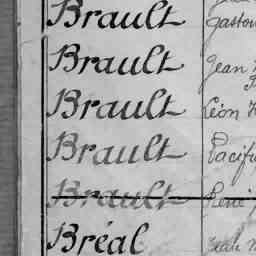 Brault Gaston
Brault Jean
Brault Léon
Brault Pacifi
Brault René
Bréal Jean